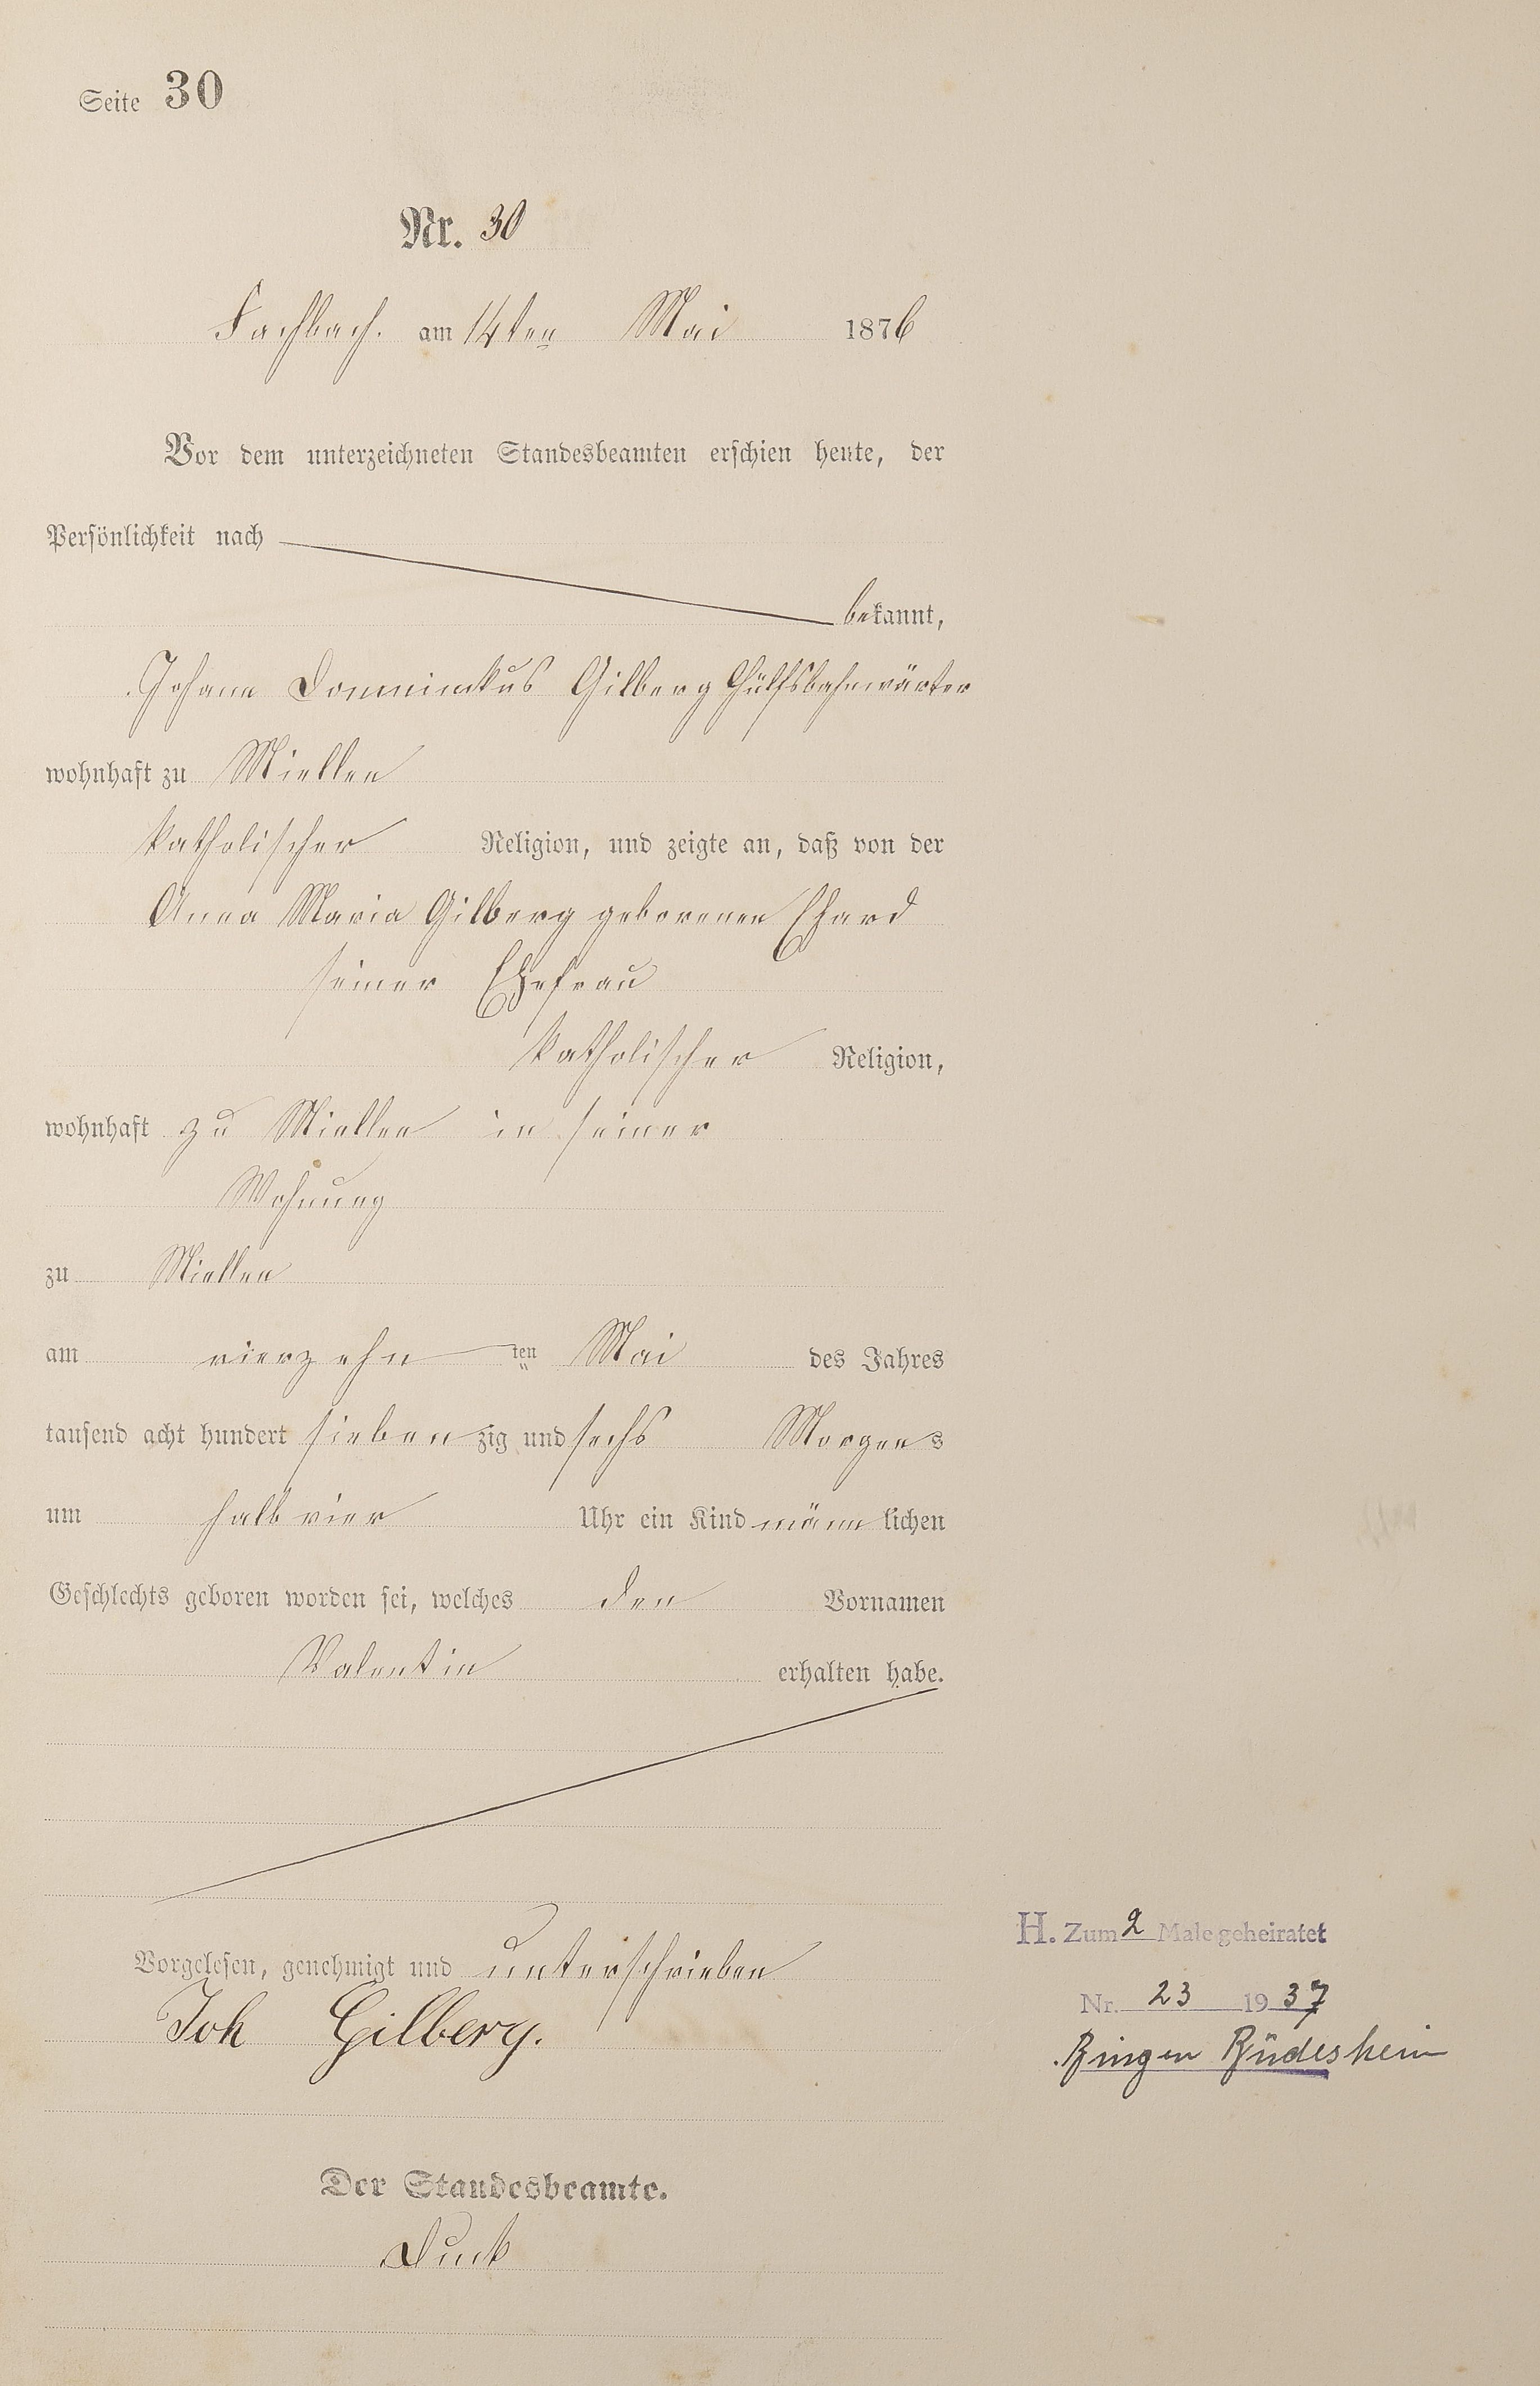 Seite 30
Nr. 30
Fachbach. am 14ten Mai 1876
Vor dem unterzeichneten Standesbeamten erschien heute, der
Persönlichkeit nach
bekannt,
Johann Domminikus Gilberg Hülfsbahnwärter
wohnhaft zu Miellen
katholischer Religion, und zeigte an, daß von der
Anna Maria Gilberg geborenen Ehard
seiner Ehefrau
katholischer Religion,
wohnhaft zu Miellen in seiner
Wohnung
zu Miellen
am vierzehn ten Mai des Jahres
tausend acht hundert siebenzig und sechs Morgens
um halb vier Uhr ein Kind männlichen
Geschlechts geboren worden sei, welches den Vornamen
Valentin erhalten habe.
Vorgelesen, genehmigt und unterschrieben
Joh Gilberg.
Der Standesbeamte.
H. Zum 2 Male geheiratet
Nr. 23 1937
Bingen Rüdesheim